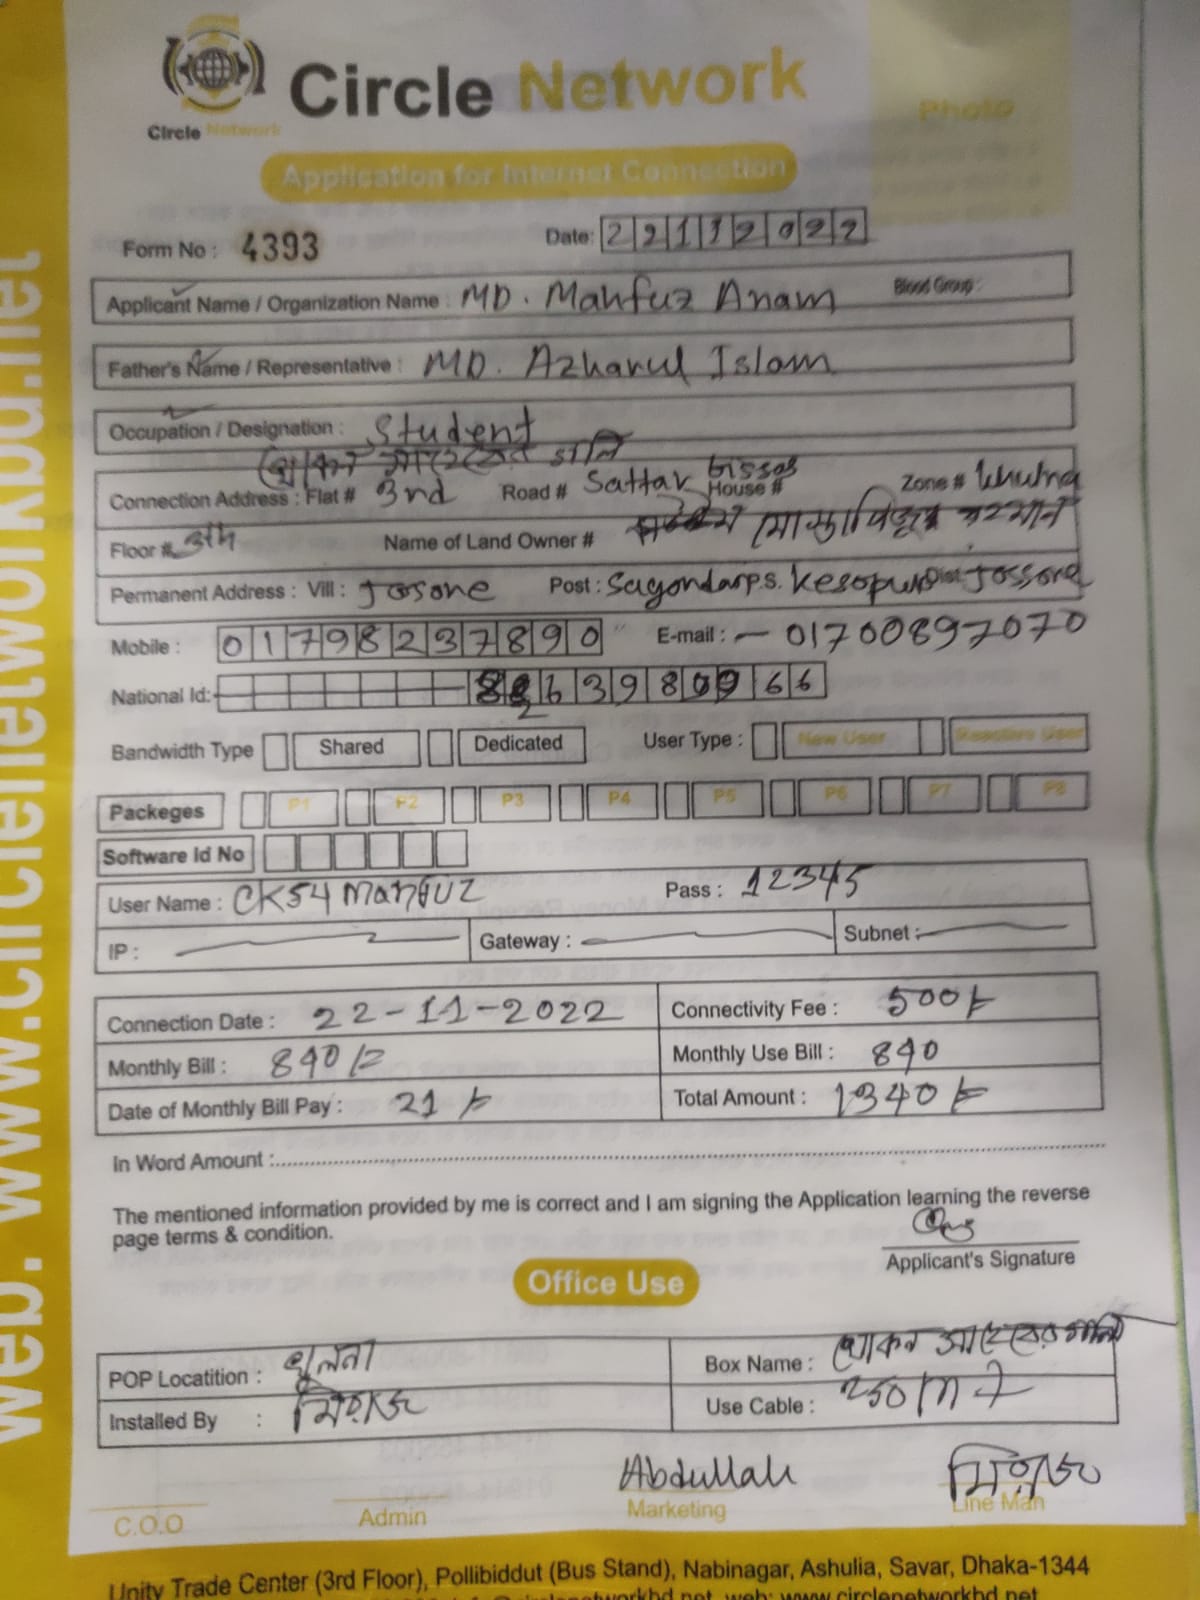 Circle Network
Circle Network
Photo
Application for Internet Connection
Form No : 4393
Date: 22112022
Applicant Name / Organization Name : MD. Mahfuz Anam Blood Group :
Father's Name / Representative : MD. Azharul Islam
Occupation / Designation : Student
Connection Address : Flat # 3rd Road # Sattar bissas House # Zone # khulna
Floor # 3th Name of Land Owner #
Permanent Address : Vill : Jossore Post : Sagondarp.s. Kesopur Dist. Jossore
Mobile : 01798237890 E-mail : — 01700897070
National Id: 6398 66
Bandwidth Type Shared Dedicated User Type : New User Reactive User
Packeges P1 P2 P3 P4 P5 P6 P7 P8
Software Id No
User Name : CK54 Mahfuz Pass : 12345
IP : Gateway : Subnet :
Connection Date : 22-11-2022 Connectivity Fee : 500/-
Monthly Bill : 840/= Monthly Use Bill : 840
Date of Monthly Bill Pay : 21 Total Amount : 1340/-
In Word Amount :
The mentioned information provided by me is correct and I am signing the Application learning the reverse
page terms & condition.
Applicant's Signature
Office Use
POP Locatition : খুলনা Box Name : খোকন সাহেবের গলি
Installed By : মিরাজ Use Cable : 250 m
Abdullah মিরাজ
C.O.O Admin Marketing Line Man
Unity Trade Center (3rd Floor), Pollibiddut (Bus Stand), Nabinagar, Ashulia, Savar, Dhaka-1344
web: www.circlenetworkbd.net
web. www.circlenetworkbd.net